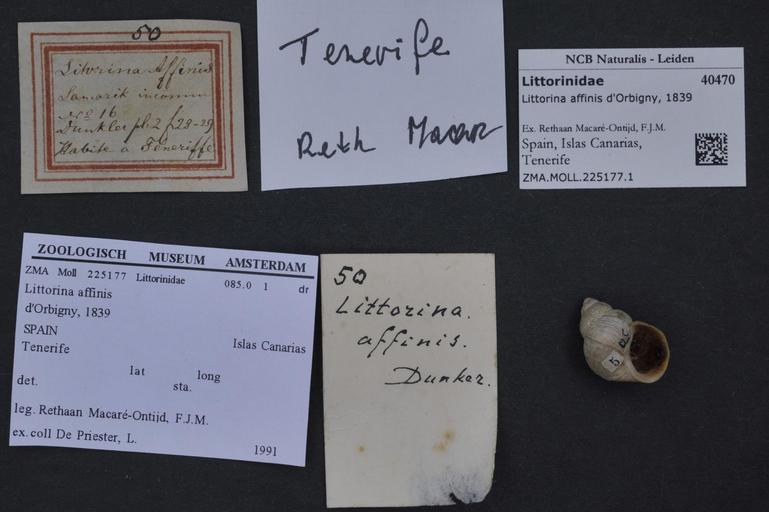 50
Litorina Affinis
Lamarck
16
Dunkler pl. 2 f 28-29
Habite a Téneriffe
Tenerife
Reth Macar
NCB Naturalis - Leiden
Littorinidae 40470
Littorina affinis d'Orbigny, 1839
Ex. Rethaan Macaré-Ontijd, F.J.M.
Spain, Islas Canarias,
Tenerife
ZMA.MOLL.225177.1
ZOOLOGISCH MUSEUM AMSTERDAM
ZMA Moll 225177 Littorinidae 085.0 1 dr
Littorina affinis
d'Orbigny, 1839
SPAIN
Tenerife Islas Canarias
lat long
det. sta.
leg. Rethaan Macaré-Ontijd, F.J.M.
ex.coll De Priester, L.
1991
50
Littorina.
affinis.
Dunker.
5